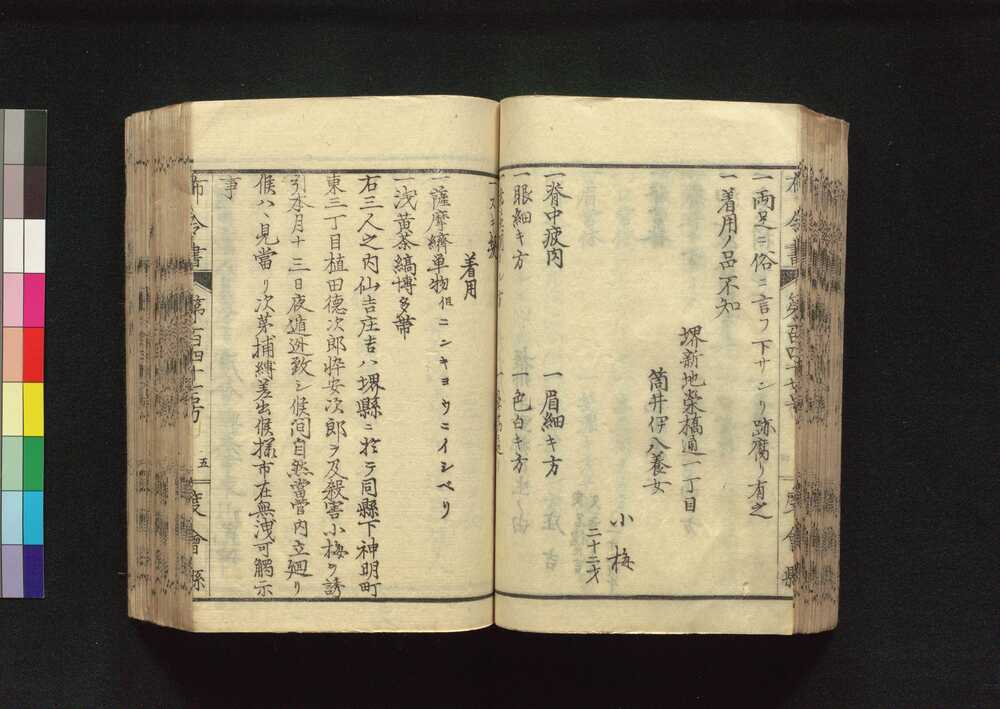 一両足ニ俗ニ言フ下サンリ跡腐り有之
一着用ノ品不知
堺新地榮橋通一丁目
筒井伊八養女
小梅
二十二才
一脊中疲内
一眉細キ方
一眼細キ方
一色白キ方
着用
一薩摩縞単物但ニンキヨウニイシベり
一浅黄茶縞博多帯
右三人之内仙吉庄吉ハ堺縣ニ於テ同縣下神明町
東三丁目植田德次郎忰安次郎ヲ及殺害小梅ヲ誘
引本月十三日夜遁逃致シ候间自然當管内立廻り
候ハヽ見當り次第捕縛差出候様市在無洩可觸示
事
布令書
第百四十七号
五
度會縣